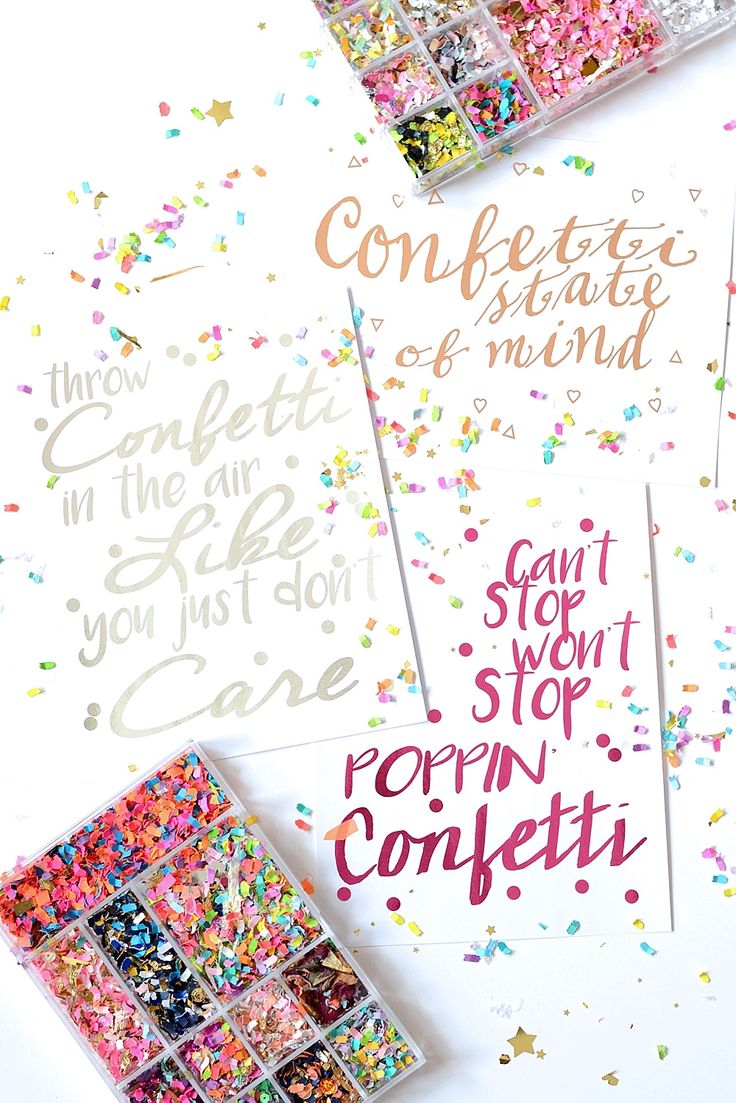 Confetti
state
of mind
throw
Confetti
in the air
Like
you just don't
Care
Can't
STOP
won't
STOP
POPPIN'
Confetti